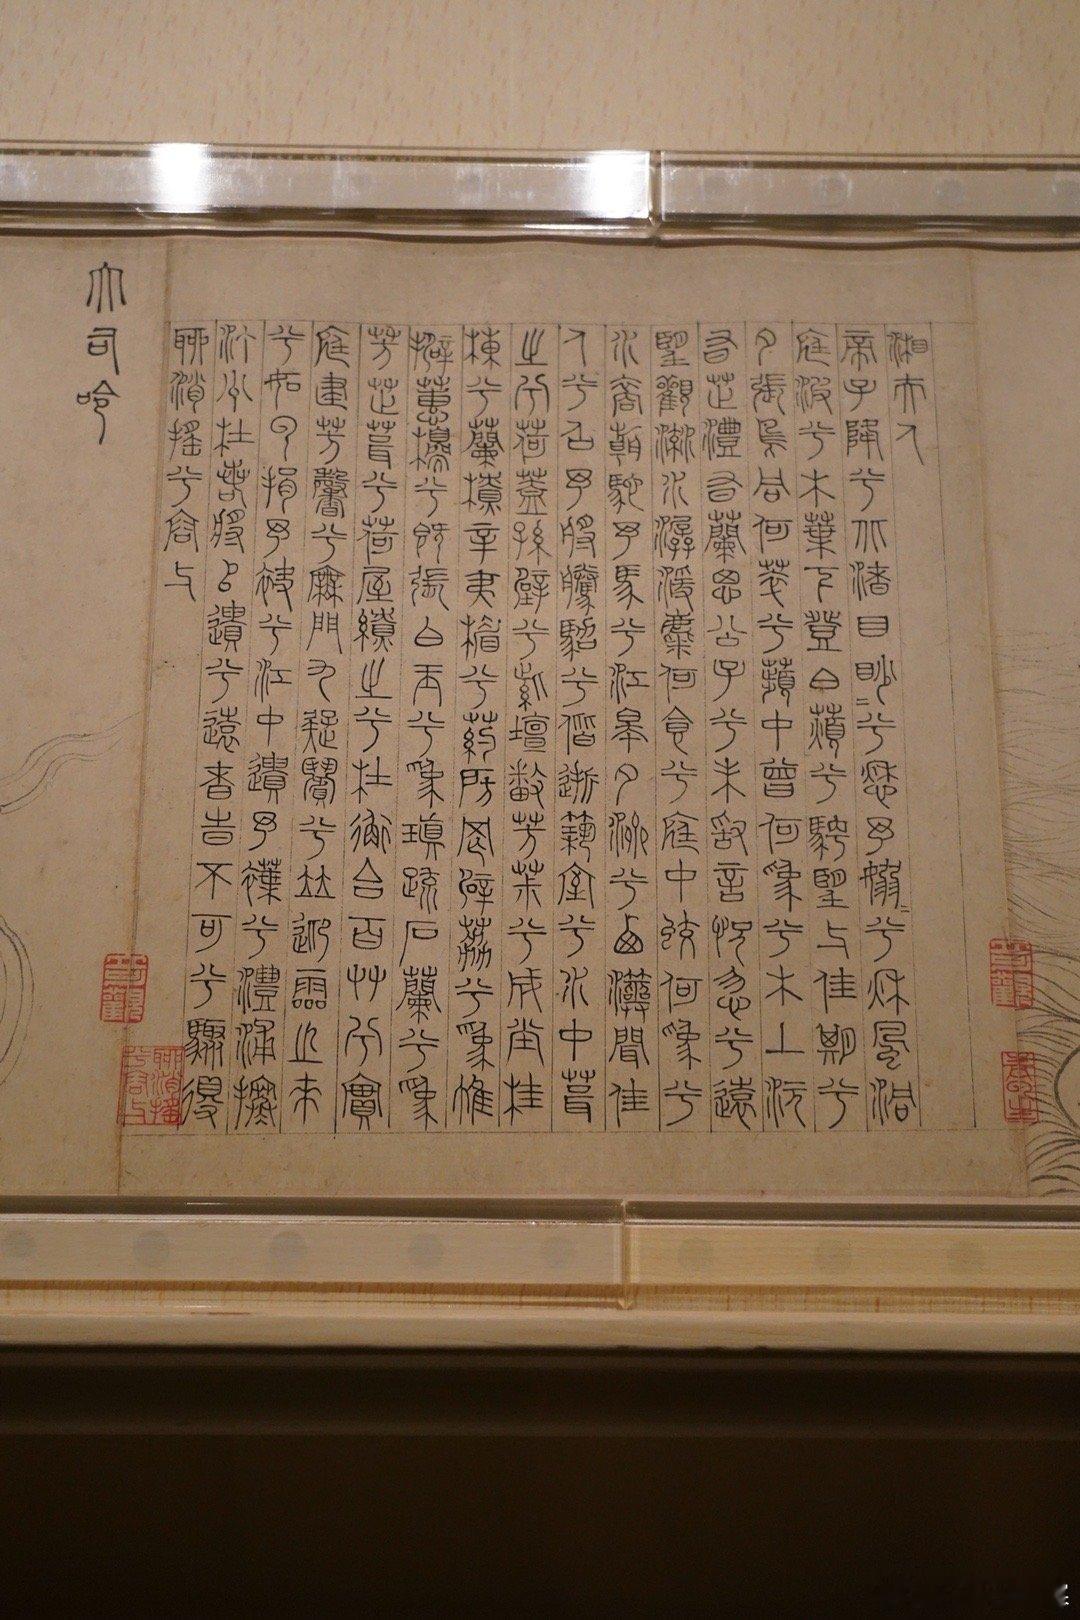 湘夫人
帝子降兮北渚目眇=兮愁予嫋=兮秋風洞
庭波兮木葉下登白薠兮騁望与佳期兮
夕張鳥何萃兮蘋中罾何爲兮木上沅
有芷澧有蘭思公子兮未敢言怳忽兮遠
望觀流水潺湲麋何食兮庭中蛟何爲兮
水裔朝馳予馬兮江皋夕濟兮西澨聞佳
人兮召予將騰駕兮偕逝築室兮水中葺
之兮荷蓋蓀壁兮紫壇播芳茮兮成堂桂
棟兮蘭橑辛夷楣兮葯房罔薜荔兮爲帷
擗蕙櫋兮既張白玉兮爲瑱疏石蘭兮爲
芳芷葺兮荷屋繚之兮杜衡合百艸兮實
庭建芳馨兮廡門九疑繽兮並迎靈之來
兮如雲捐予袂兮江中遺予褋兮澧浦搴
汀兮杜若將以遺兮遠者時不可兮驟得
聊逍搖兮容与
大司命
聊逍搖兮容与